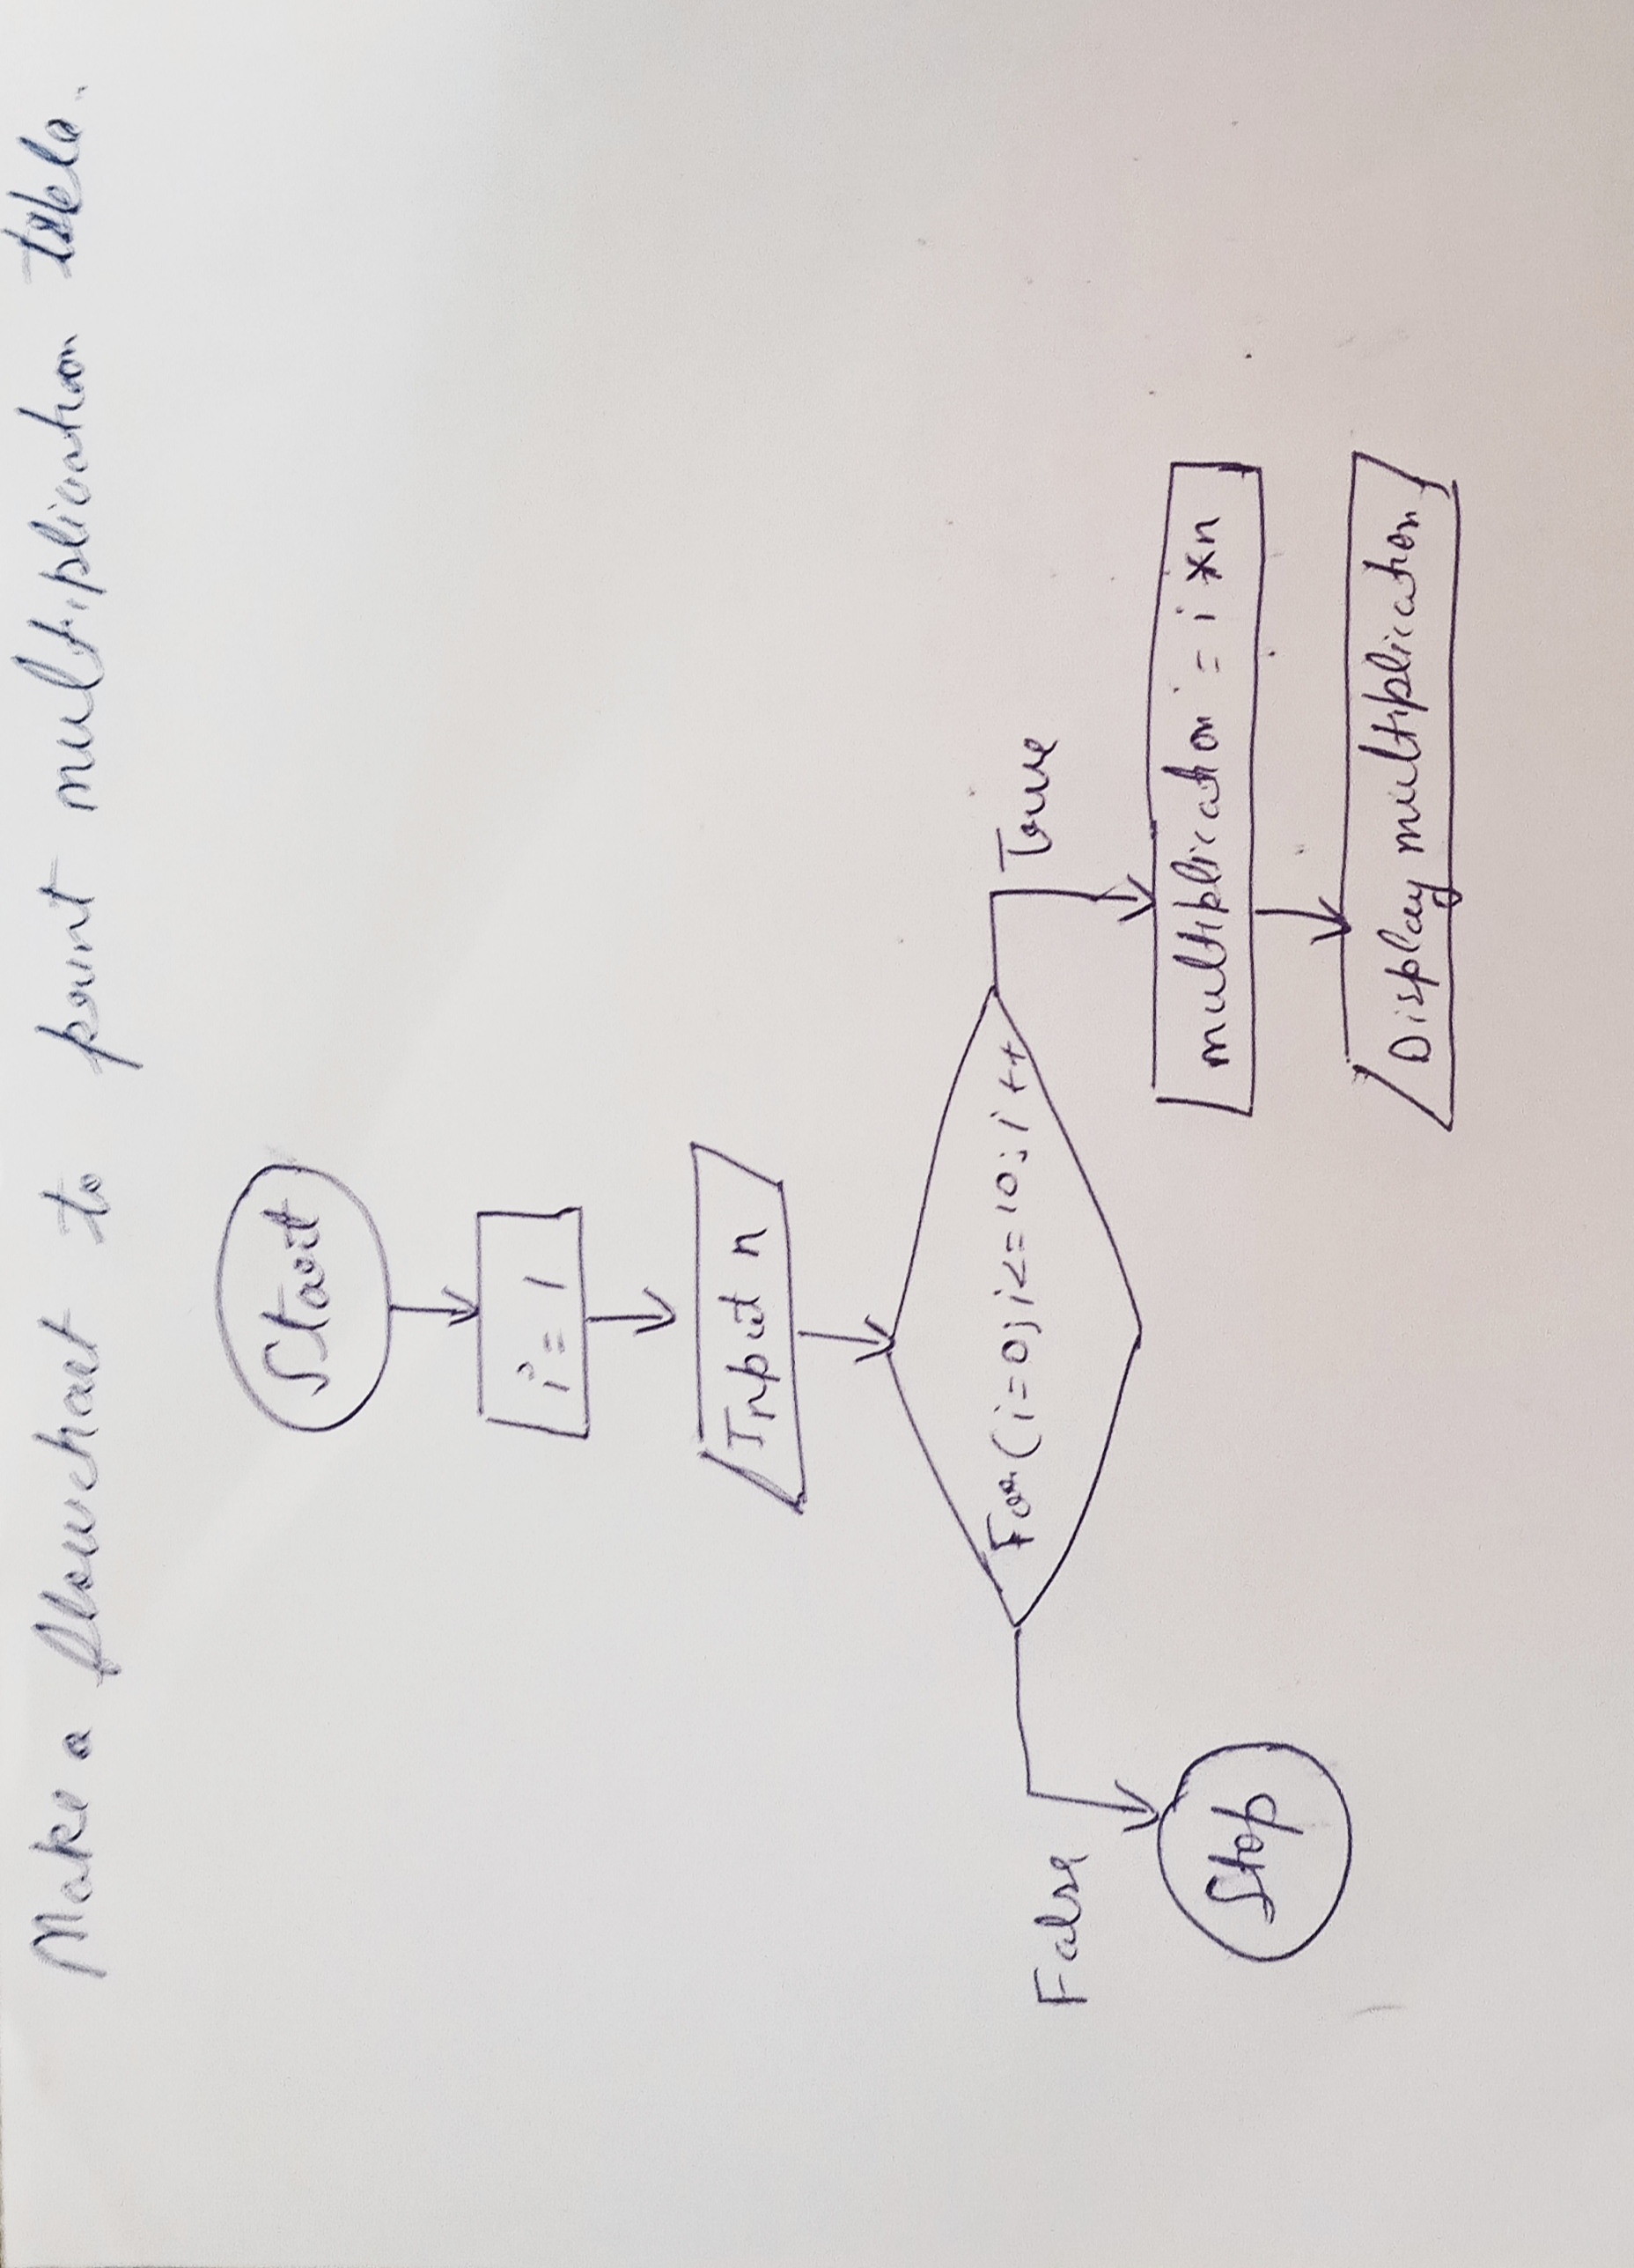 Make a flowchart to print multiplication table.
Start
i = 1
Input n
For (i=0; i<=10; i++
True
False
multiplication = i * n
Stop
Display multiplication